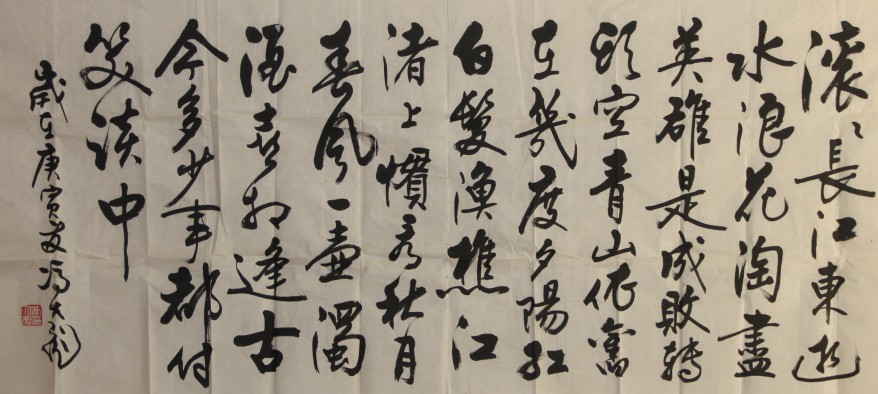 滚〻長江東逝
水浪花淘盡
英雄是成敗轉
頭空青山依舊
在幾度夕陽紅
白髮漁樵江
渚上慣看秋月
春風一壺濁
酒喜相逢古
今多少事都付
笑談中
歲在庚寅夏馮大彪